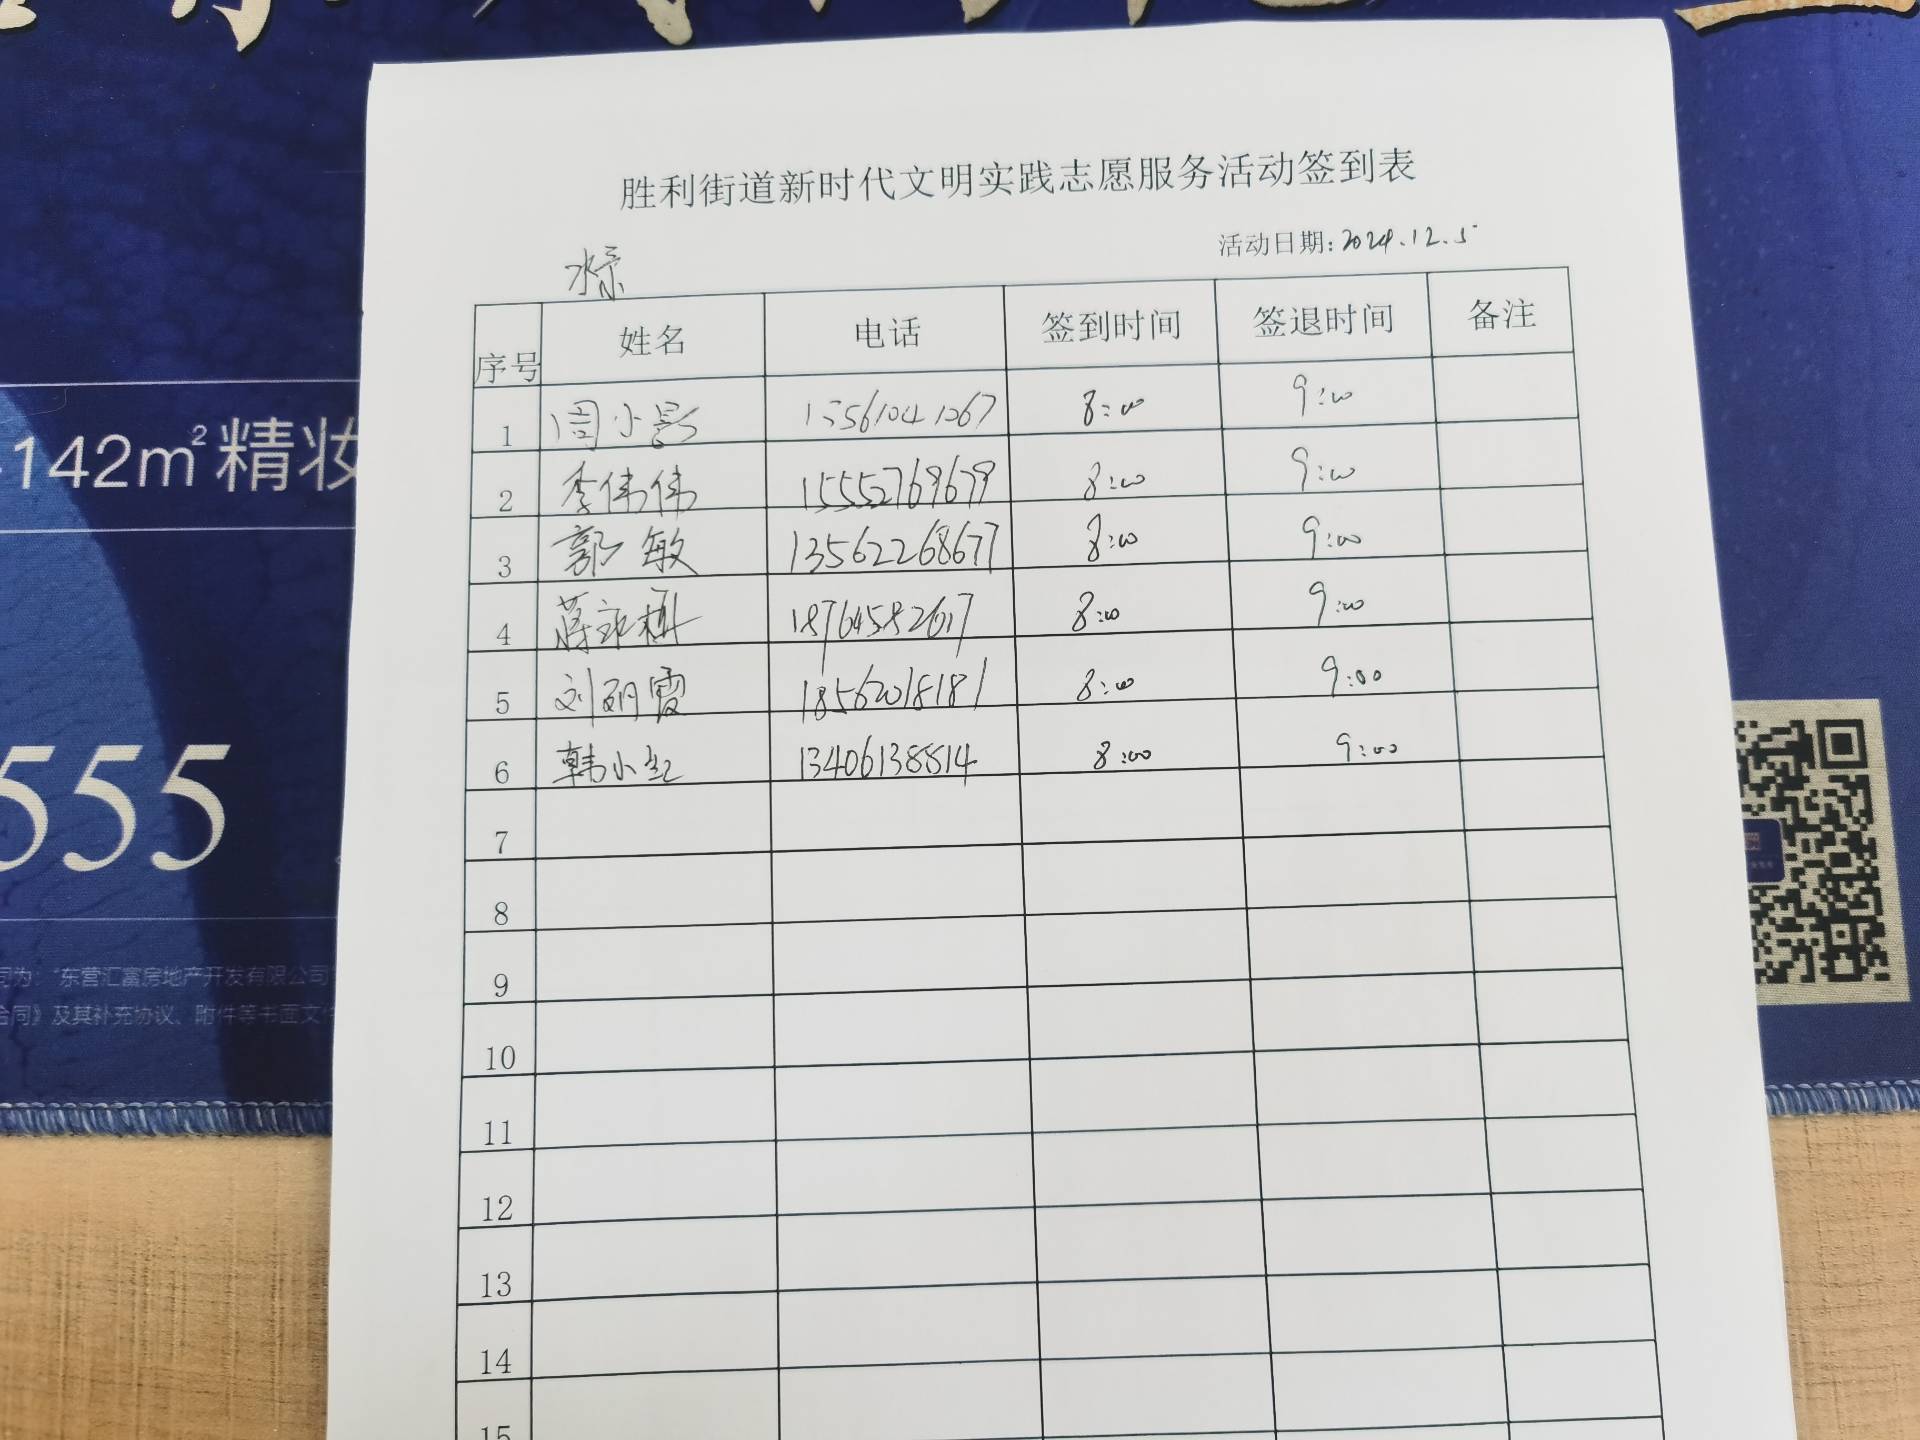 胜利街道新时代文明实践志愿服务活动签到表
活动日期:2024.12.5
序号 姓名 电话 签到时间 签退时间 备注
1 周小影 15561041067 8:00 9:00
2 李伟伟 15552769679 8:00 9:00
3 郭敏 13562268677 8:00 9:00
4 18764582617 8:00 9:00
5 刘明霞 18562018181 8:00 9:00
6 韩小红 13406138514 8:00 9:00
7
8
9
10
11
12
13
14
15
142m²精妆
555
司为:"东营汇富房地产开发有限公司
合同》及其补充协议、附件等书面文件